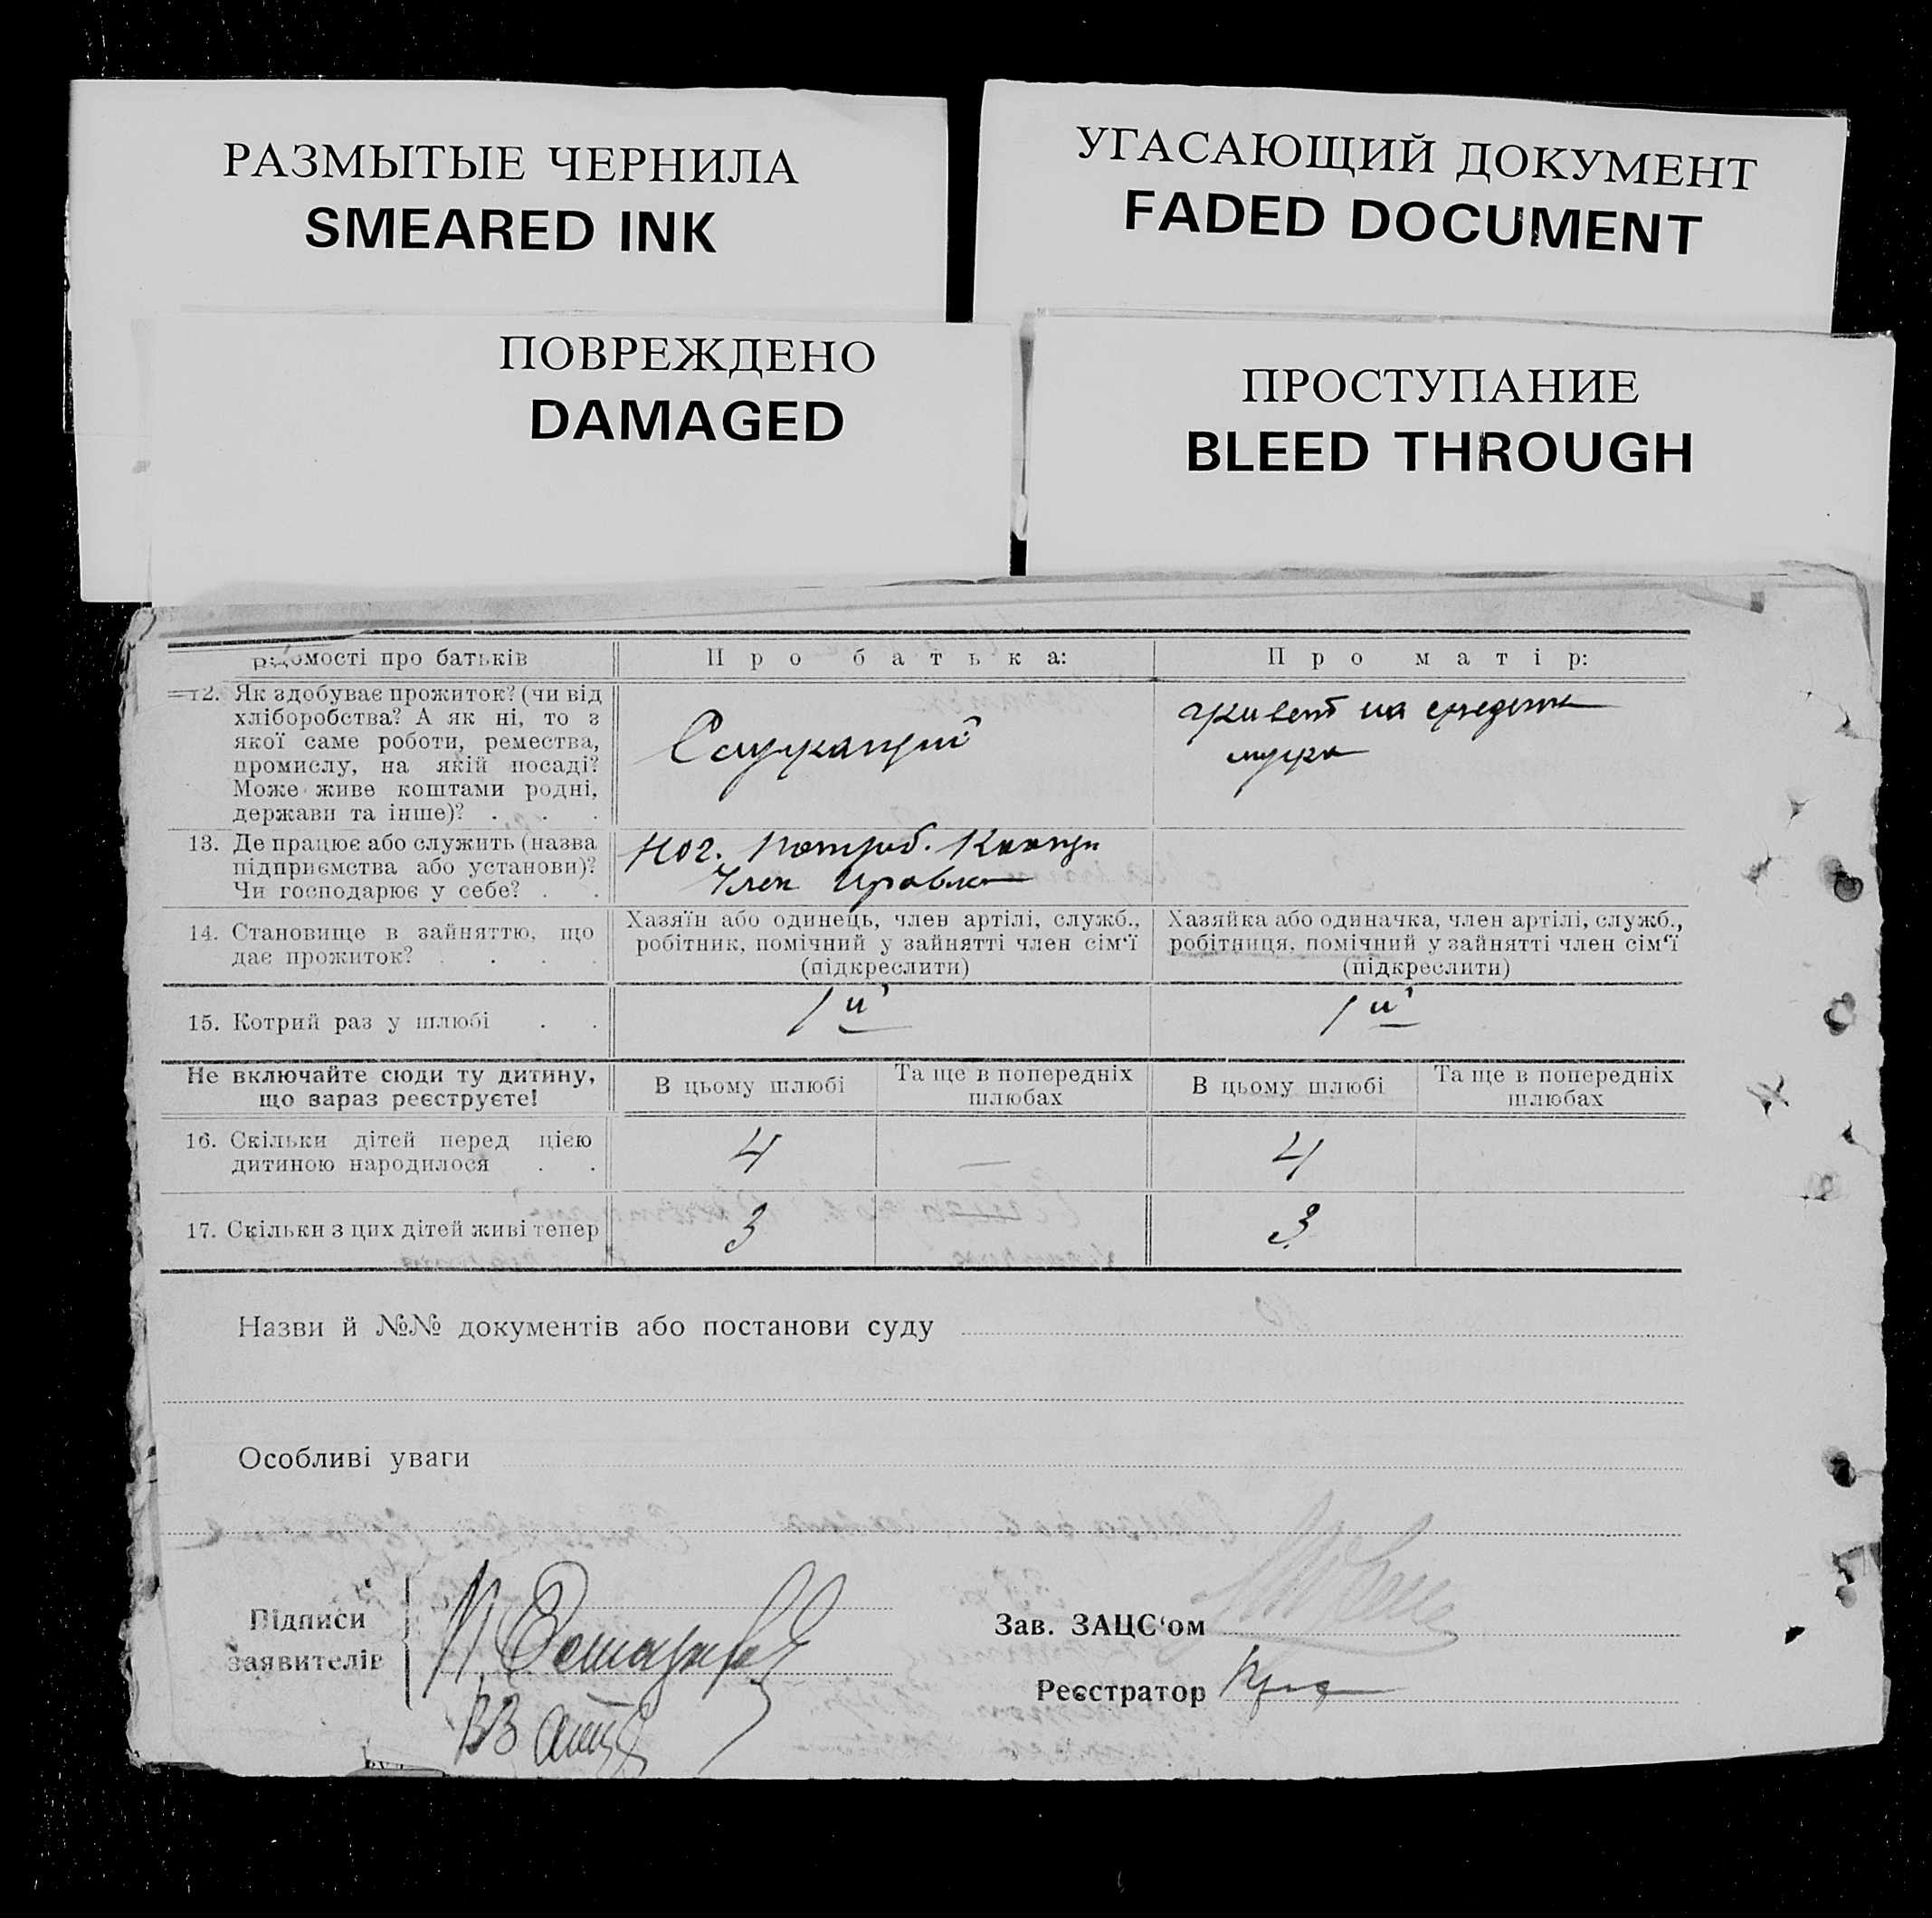 РАЗМЫТЫЕ ЧЕРНИЛА
SMEARED INK
УГАСАЮЩИЙ ДОКУМЕНТ
FADED DOCUMENT
ПОВРЕЖДЕНО
DAMAGED
ПРОСТУПАНИЕ
BLEED THROUGH
відомості про батьків
Про батька:
Про матір:
12. Як здобуває прожиток? (чи від
хліборобства? А як ні, то з
якої саме роботи, ремества,
промислу, на якій посаді?
Може живе коштами родні,
держави та інше)? . . .
Служащий
живет на средства
мужа
13. Де працює або служить (назва
підприємства або установи)?
Чи господарює у себе? . .
потреб. Кооп
Член Правлен
14. Становище в зайняттю, що
дає прожиток? . . . .
Хазяїн або одинець, член артілі, служб.,
робітник, помічний у зайнятті член сім'ї
(підкреслити)
Хазяйка або одиначка, член артілі, служб.,
робітниця, помічний у зайнятті член сім'ї
(підкреслити)
15. Котрий раз у шлюбі . .
1й
1й
Не включайте сюди ту дитину,
що зараз реєструєте!
В цьому шлюбі
Та ще в попередніх
шлюбах
В цьому шлюбі
Та ще в попередніх
шлюбах
16. Скільки дітей перед цією
дитиною народилося . .
4
—
4
17. Скільки з цих дітей живі тепер
3
3
Назви й №№ документів або постанови суду
Особливі уваги
Підписи
заявителів
Зав. ЗАЦС'ом
Реєстратор